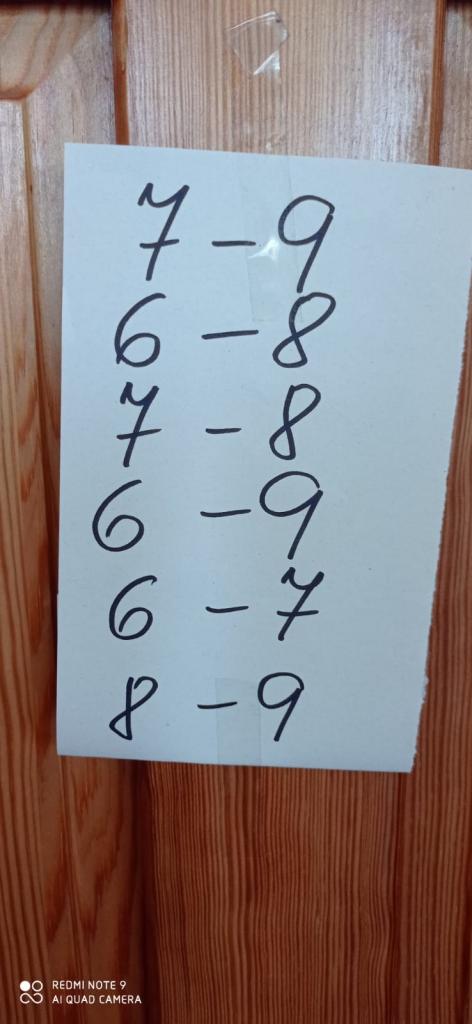 7 - 9
6 - 8
7 - 8
6 - 9
6 - 7
8 - 9
REDMI NOTE 9
AI QUAD CAMERA